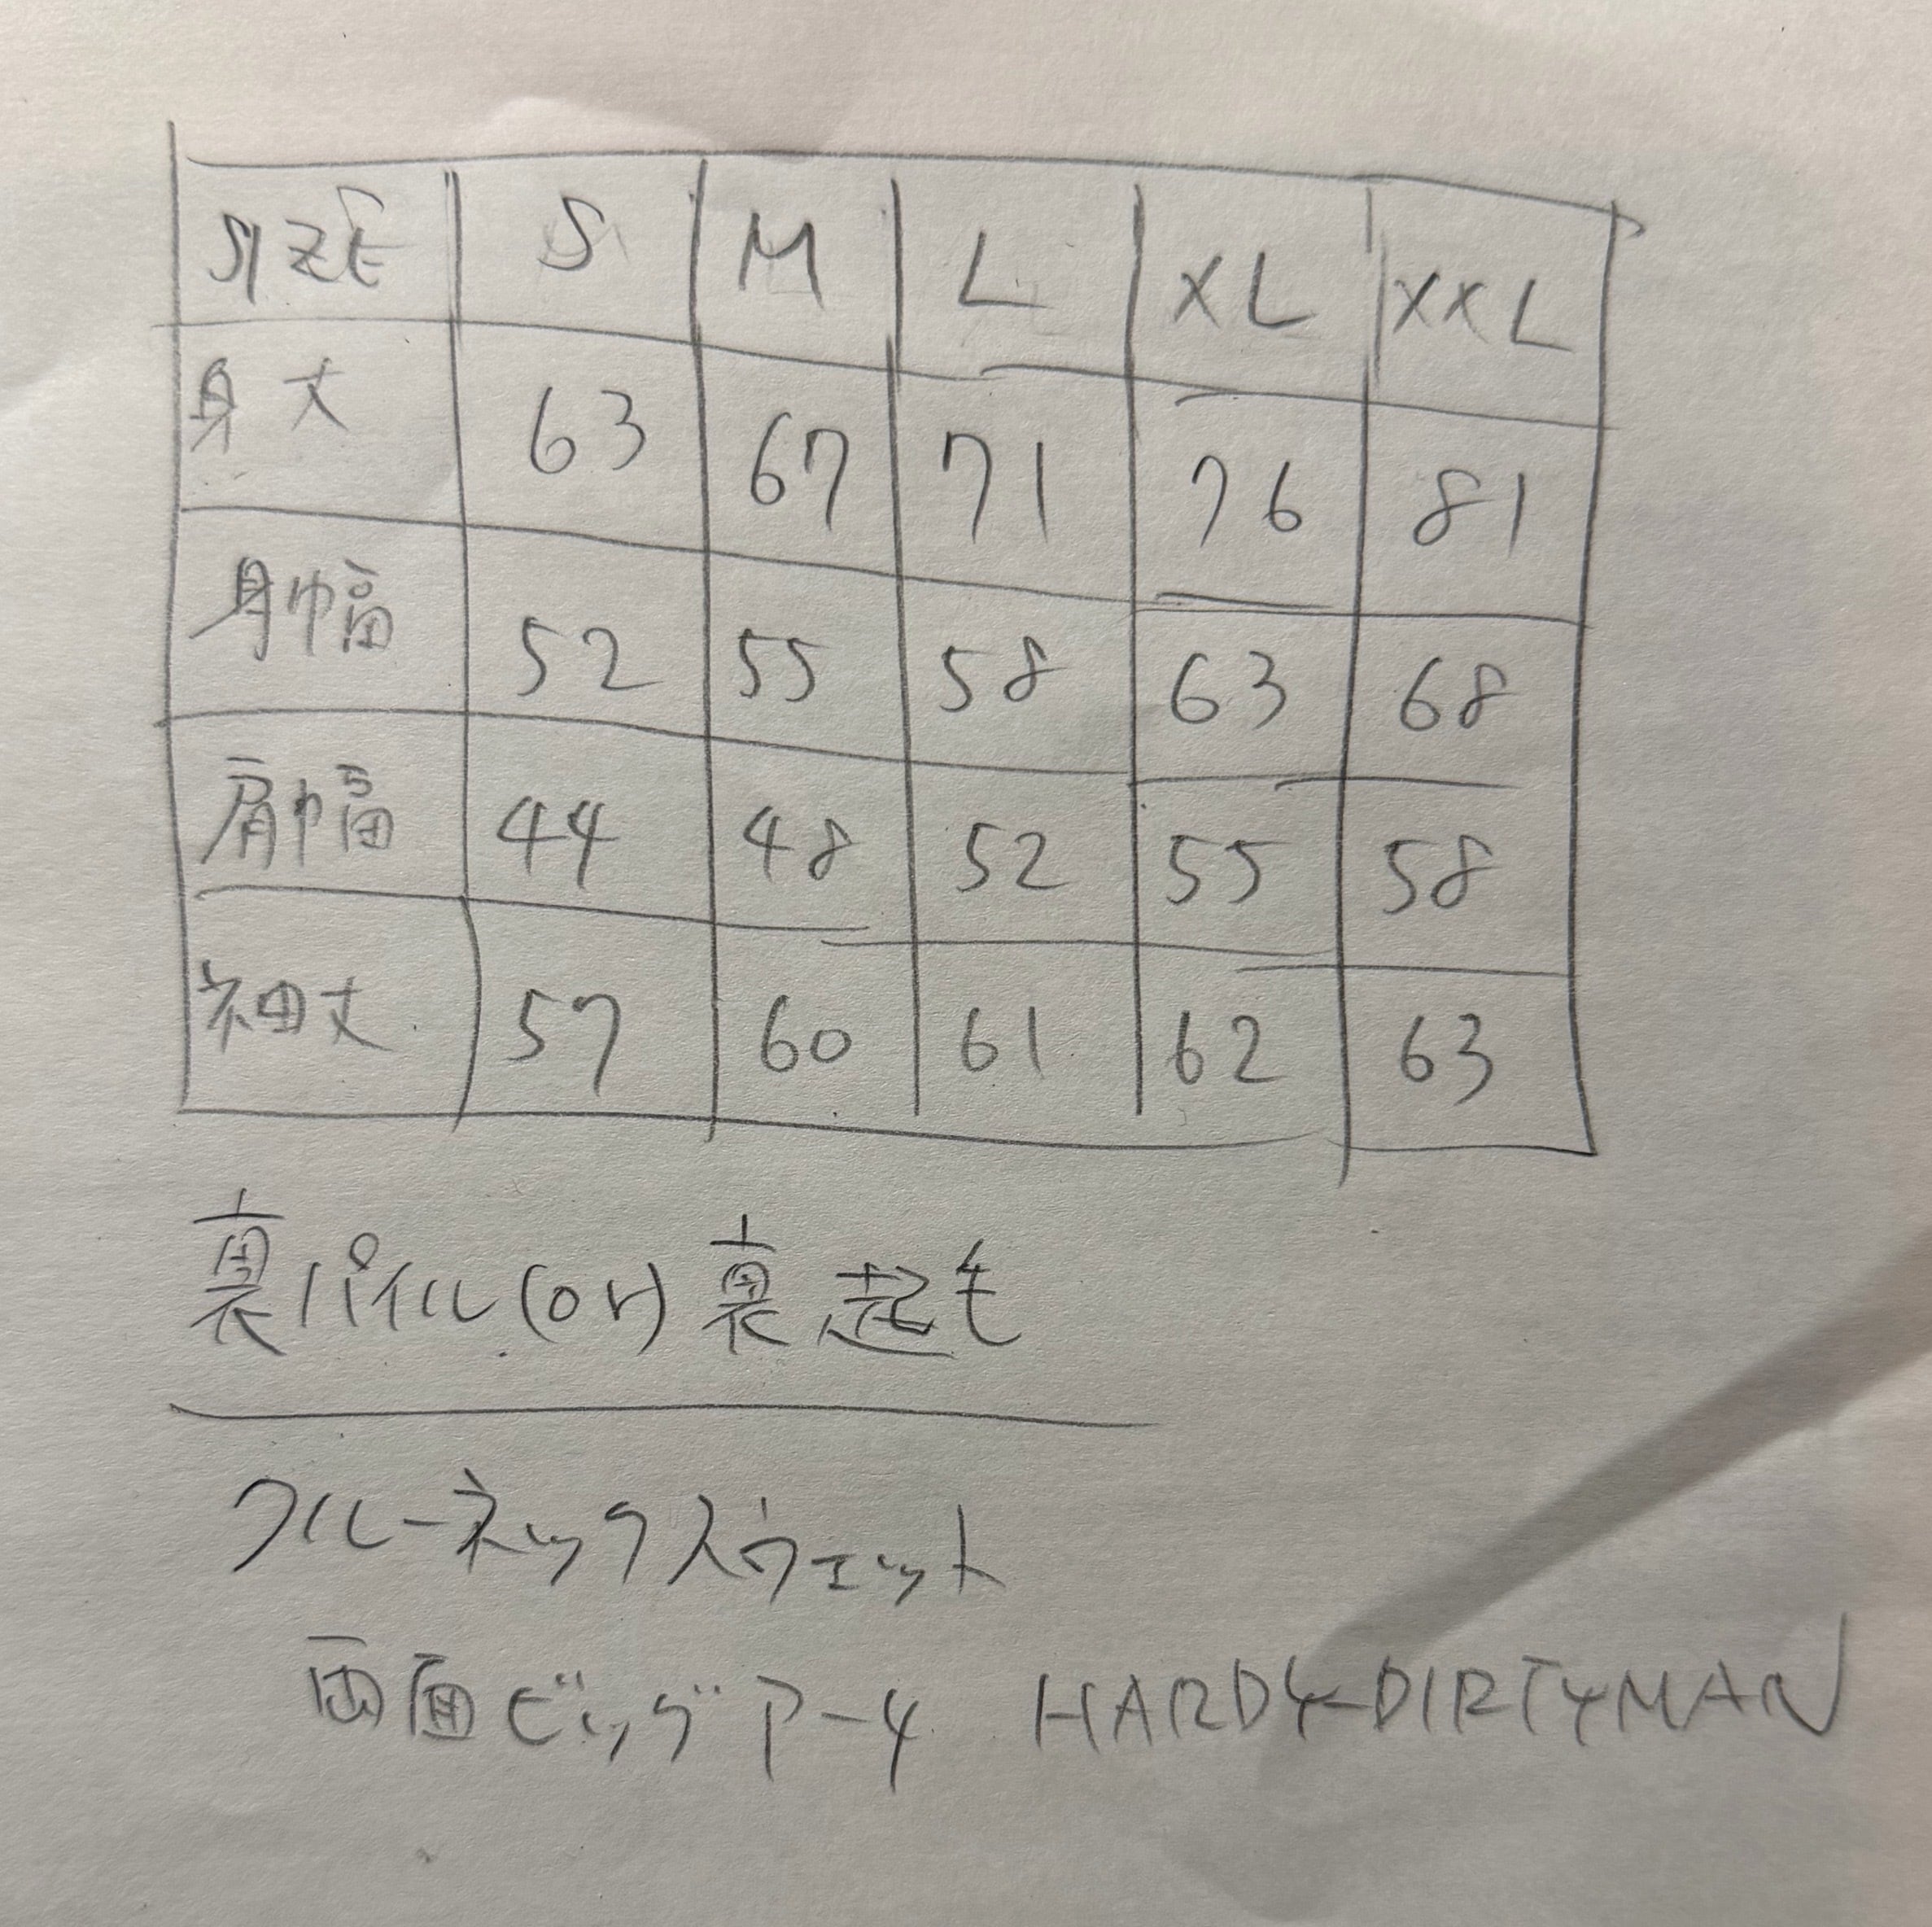 SIZE S M L XL XXL
身丈 63 67 71 76 81
身幅 52 55 58 63 68
肩幅 44 48 52 55 58
袖丈 57 60 61 62 63
裏パイル(or)裏起毛
クルーネックスウェット
両面ビッグアーチ HARDY-DIRTYMAN